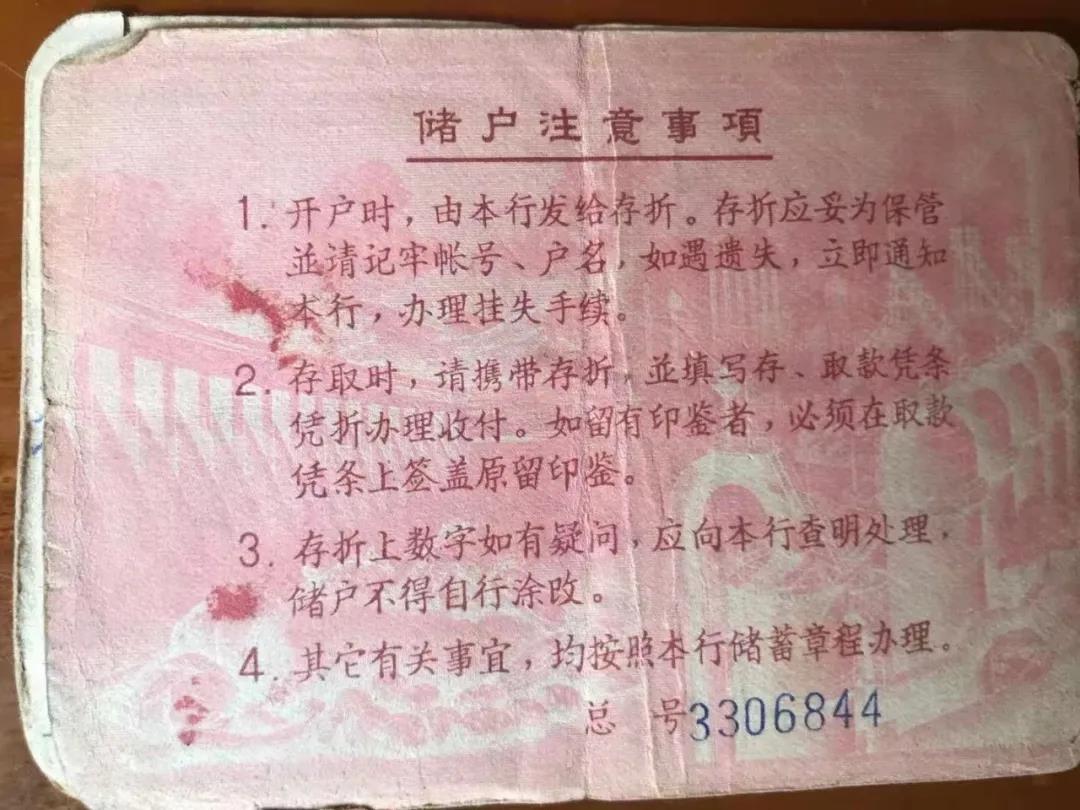 储户注意事項
1. 开户时，由本行发给存折。存折应妥为保管
並请记牢帐号、户名，如遇遗失，立即通知
本行，办理挂失手续。
2. 存取时，请携带存折，並填写存、取款凭条
凭折办理收付。如留有印鉴者，必须在取款
凭条上签盖原留印鉴。
3. 存折上数字如有疑问，应向本行查明处理，
储户不得自行涂改。
4. 其它有关事宜，均按照本行储蓄章程办理。
总 号3306844